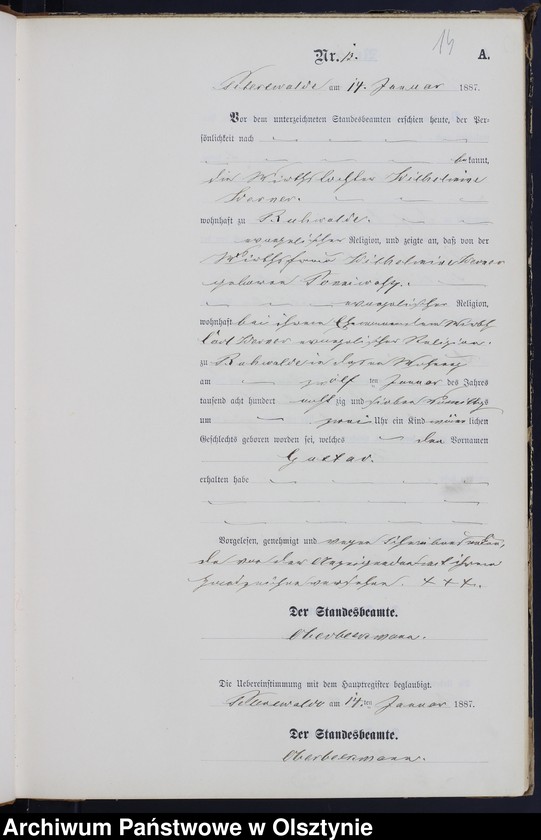 15
Nr. A.
am 14. Januar 1887.
Vor dem unterzeichneten Standesbeamten erschien heute, der Per-
sönlichkeit nach
bekannt,
die Wilhelmine
wohnhaft zu
evangelischer Religion, und zeigte an, daß von der
Wirthsfrau Wilhelmine
geborene
evangelischer Religion,
wohnhaft bei ihrem Ehemann dem Wirth
Carl evangelischer Religion.
zu in dessen Wohnung
am zwölf ten Januar des Jahres
tausend acht hundert acht zig und sieben Vormittags
um zwei Uhr ein Kind männlichen
Geschlechts geboren worden sei, welches den Vornamen
Gustav.
erhalten habe
Vorgelesen, genehmigt und wegen
von der mit ihrem
Handzeichen versehen. + + +.
Der Standesbeamte.
Oberbeckmann.
Die Uebereinstimmung mit dem Hauptregister beglaubigt.
am 14. ten Januar 1887.
Der Standesbeamte.
Oberbeckmann.
Archiwum Państwowe w Olsztynie